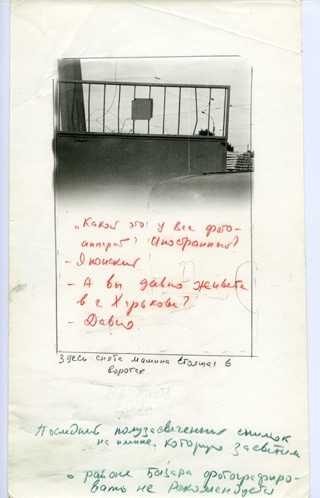 „Какой это у вас фото-
аппарат? Иностранный?
- Японский
- А вы давно живете
в г. Харькове?
- Давно.
Здесь снята машина стоящая в
воротах
Последний полузасвеченный снимок
на пленке, которую засветили
в районе базара фотографиро-
вать не рекомендуется